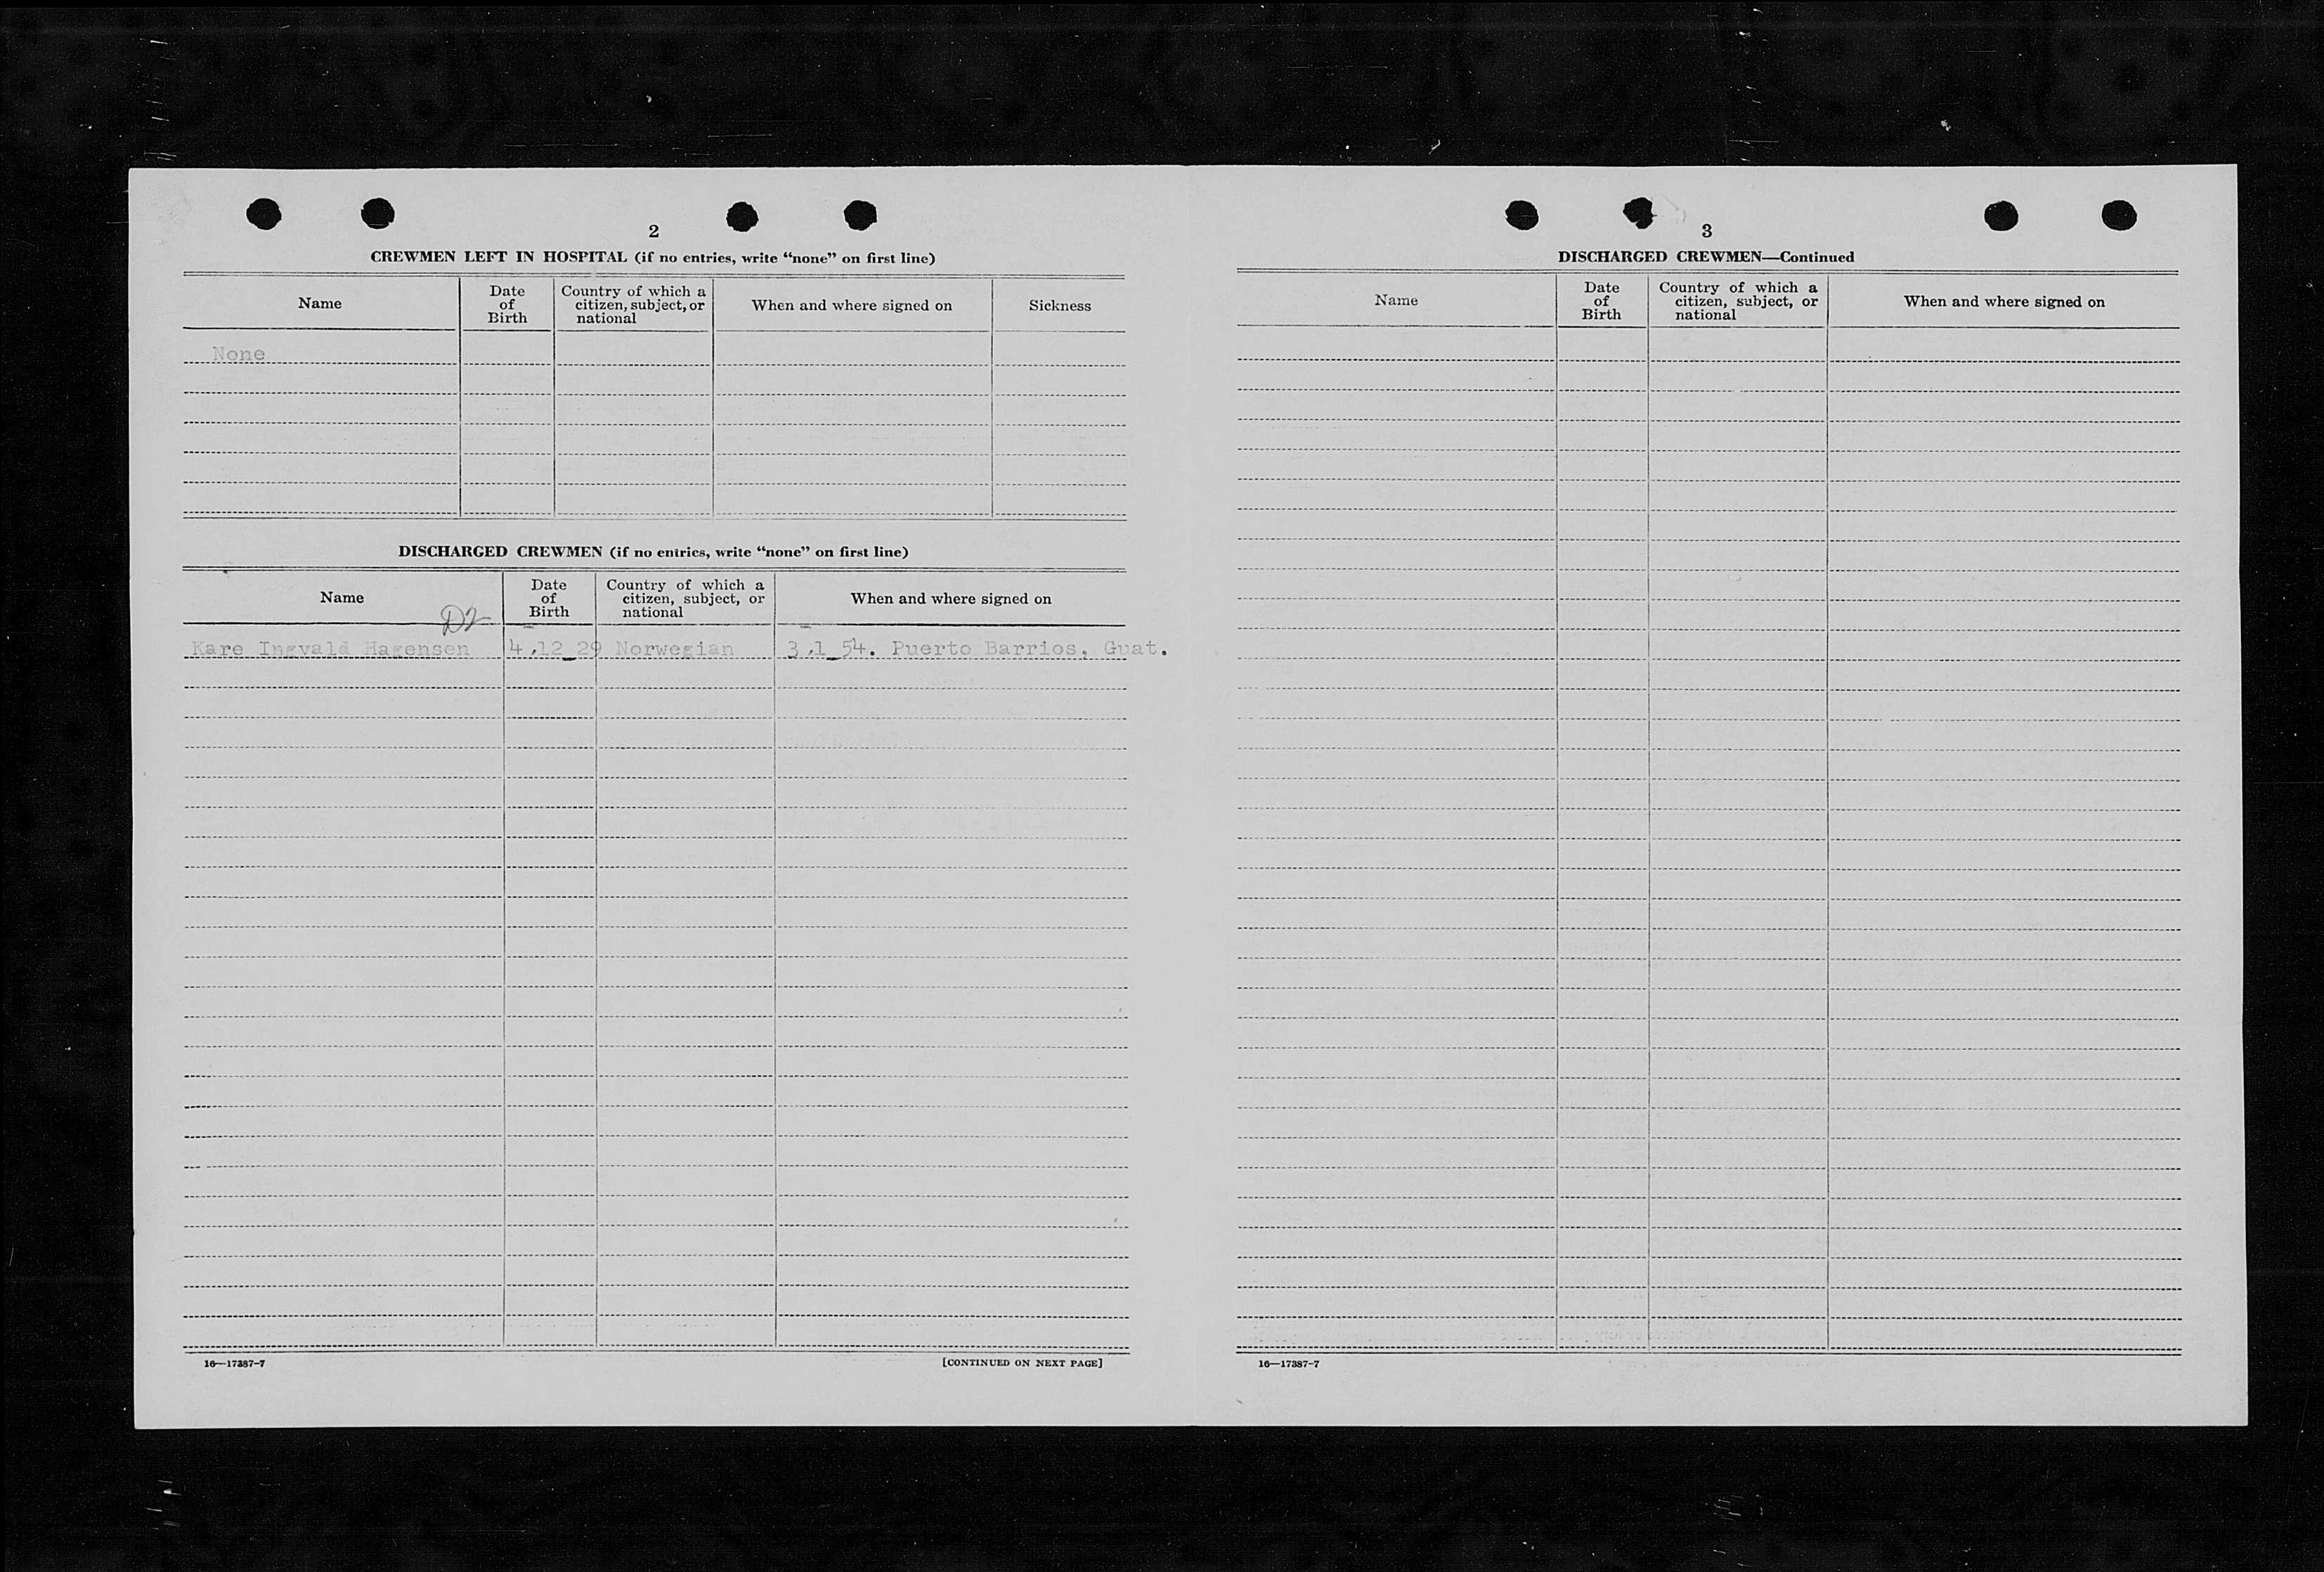 2
CREWMEN LEFT IN HOSPITAL (if no entries, write “none” on first line)
Name
Date of Birth
Country of which a citizen, subject, or national
When and where signed on
Sickness
None
DISCHARGED CREWMEN (if no entries, write “none” on first line)
Name
Date of Birth
Country of which a citizen, subject, or national
When and where signed on
D2
Kare Ingvald Hagensen 4.12 29 Norwegian 3.1 54. Puerto Barrios, Guat.
16—17387-7
[CONTINUED ON NEXT PAGE]
3
DISCHARGED CREWMEN—Continued
Name
Date of Birth
Country of which a citizen, subject, or national
When and where signed on
16—17387-7